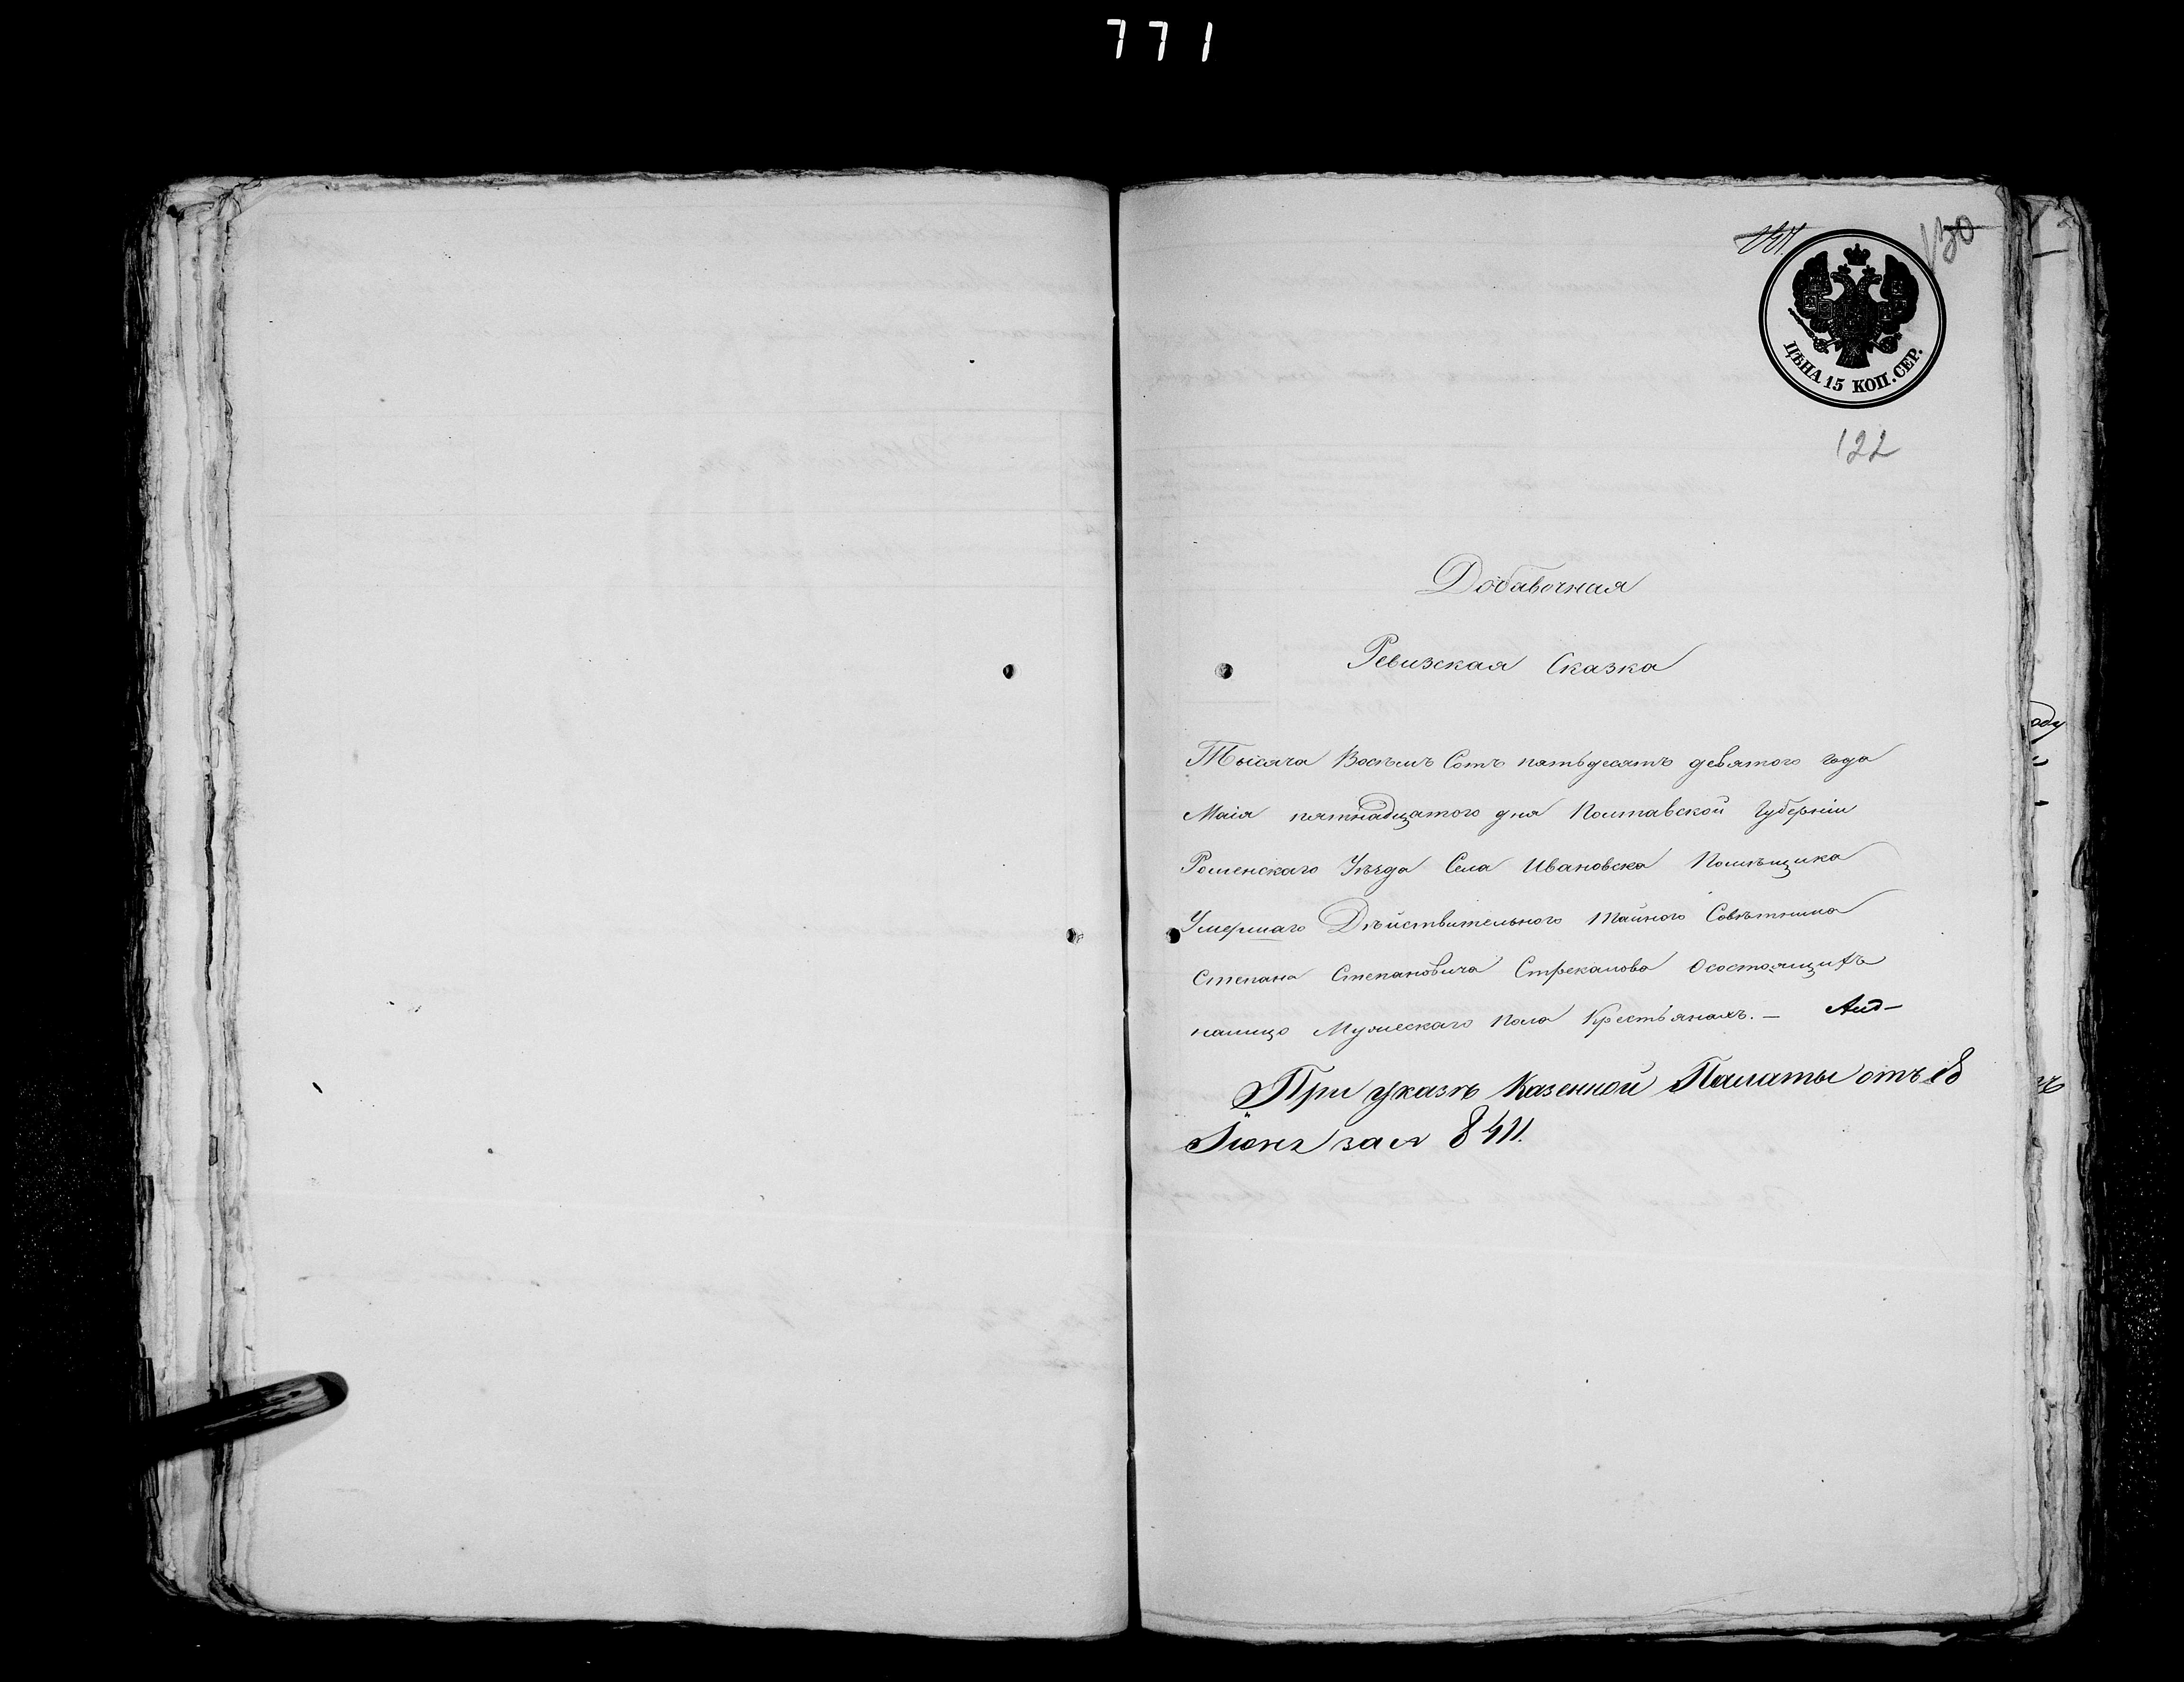 771
130
ЦѢНА 15 КОП. СЕР.
122
Добавочная
Ревизская Сказка
Тысяча Восѣмъ Сотъ пятьдесятъ девятого года
Маія пятнадцатого дня Полтавской Губерніи
Роменскаго Уѣзда Села Ивановска Помѣщика
Умершаго Дѣйствительного Тайного Совѣтника
Степана Степановича Стрекалова О состоящихъ
налицо Мужескаго пола Крестьянахъ. —
При указѣ Казенной Палаты отъ 18
Іюня за № 8411.